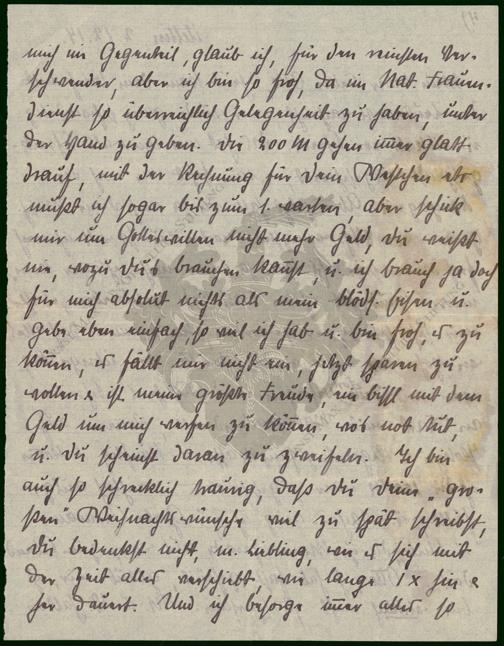 mich im Gegenteil, glaub ich, für den reinsten Ver-
schwender, aber ich bin so froh, da im Nat. Frauen-
dienst so überreichlich Gelegenheit zu haben, unter
der Hand zu geben. Die 200 M gehen immer glatt
drauf, mit der Rechnung für Dein Westchen etc
mußt ich sogar bis zum 1. warten, aber schick
mir um Gotteswillen nicht mehr Geld, Du weißt
nie, wozu Dus brauchen kannst, u. ich brauch ja doch
für mich absolut nichts als mein blöds. Essen u.
gebe eben einfach, so viel ich hab u. bin froh, es zu
können, es fällt mir nicht ein, jetzt sparen zu
wollen & ist meine größte Freude, ein bissl mit dem
Geld um mich werfen zu können, wos not tut,
u. Du scheinst daran zu zweifeln. Ich bin
auch so schrecklich traurig, daß Du Deine „gro-
ßen" Weihnachtswünsche viel zu spät schreibst,
Du bedenkst nicht, m. Liebling, wie es sich mit
der Zeit alles verschiebt, wie lange 1 x hin &
her dauert. Und ich besorge immer alles so